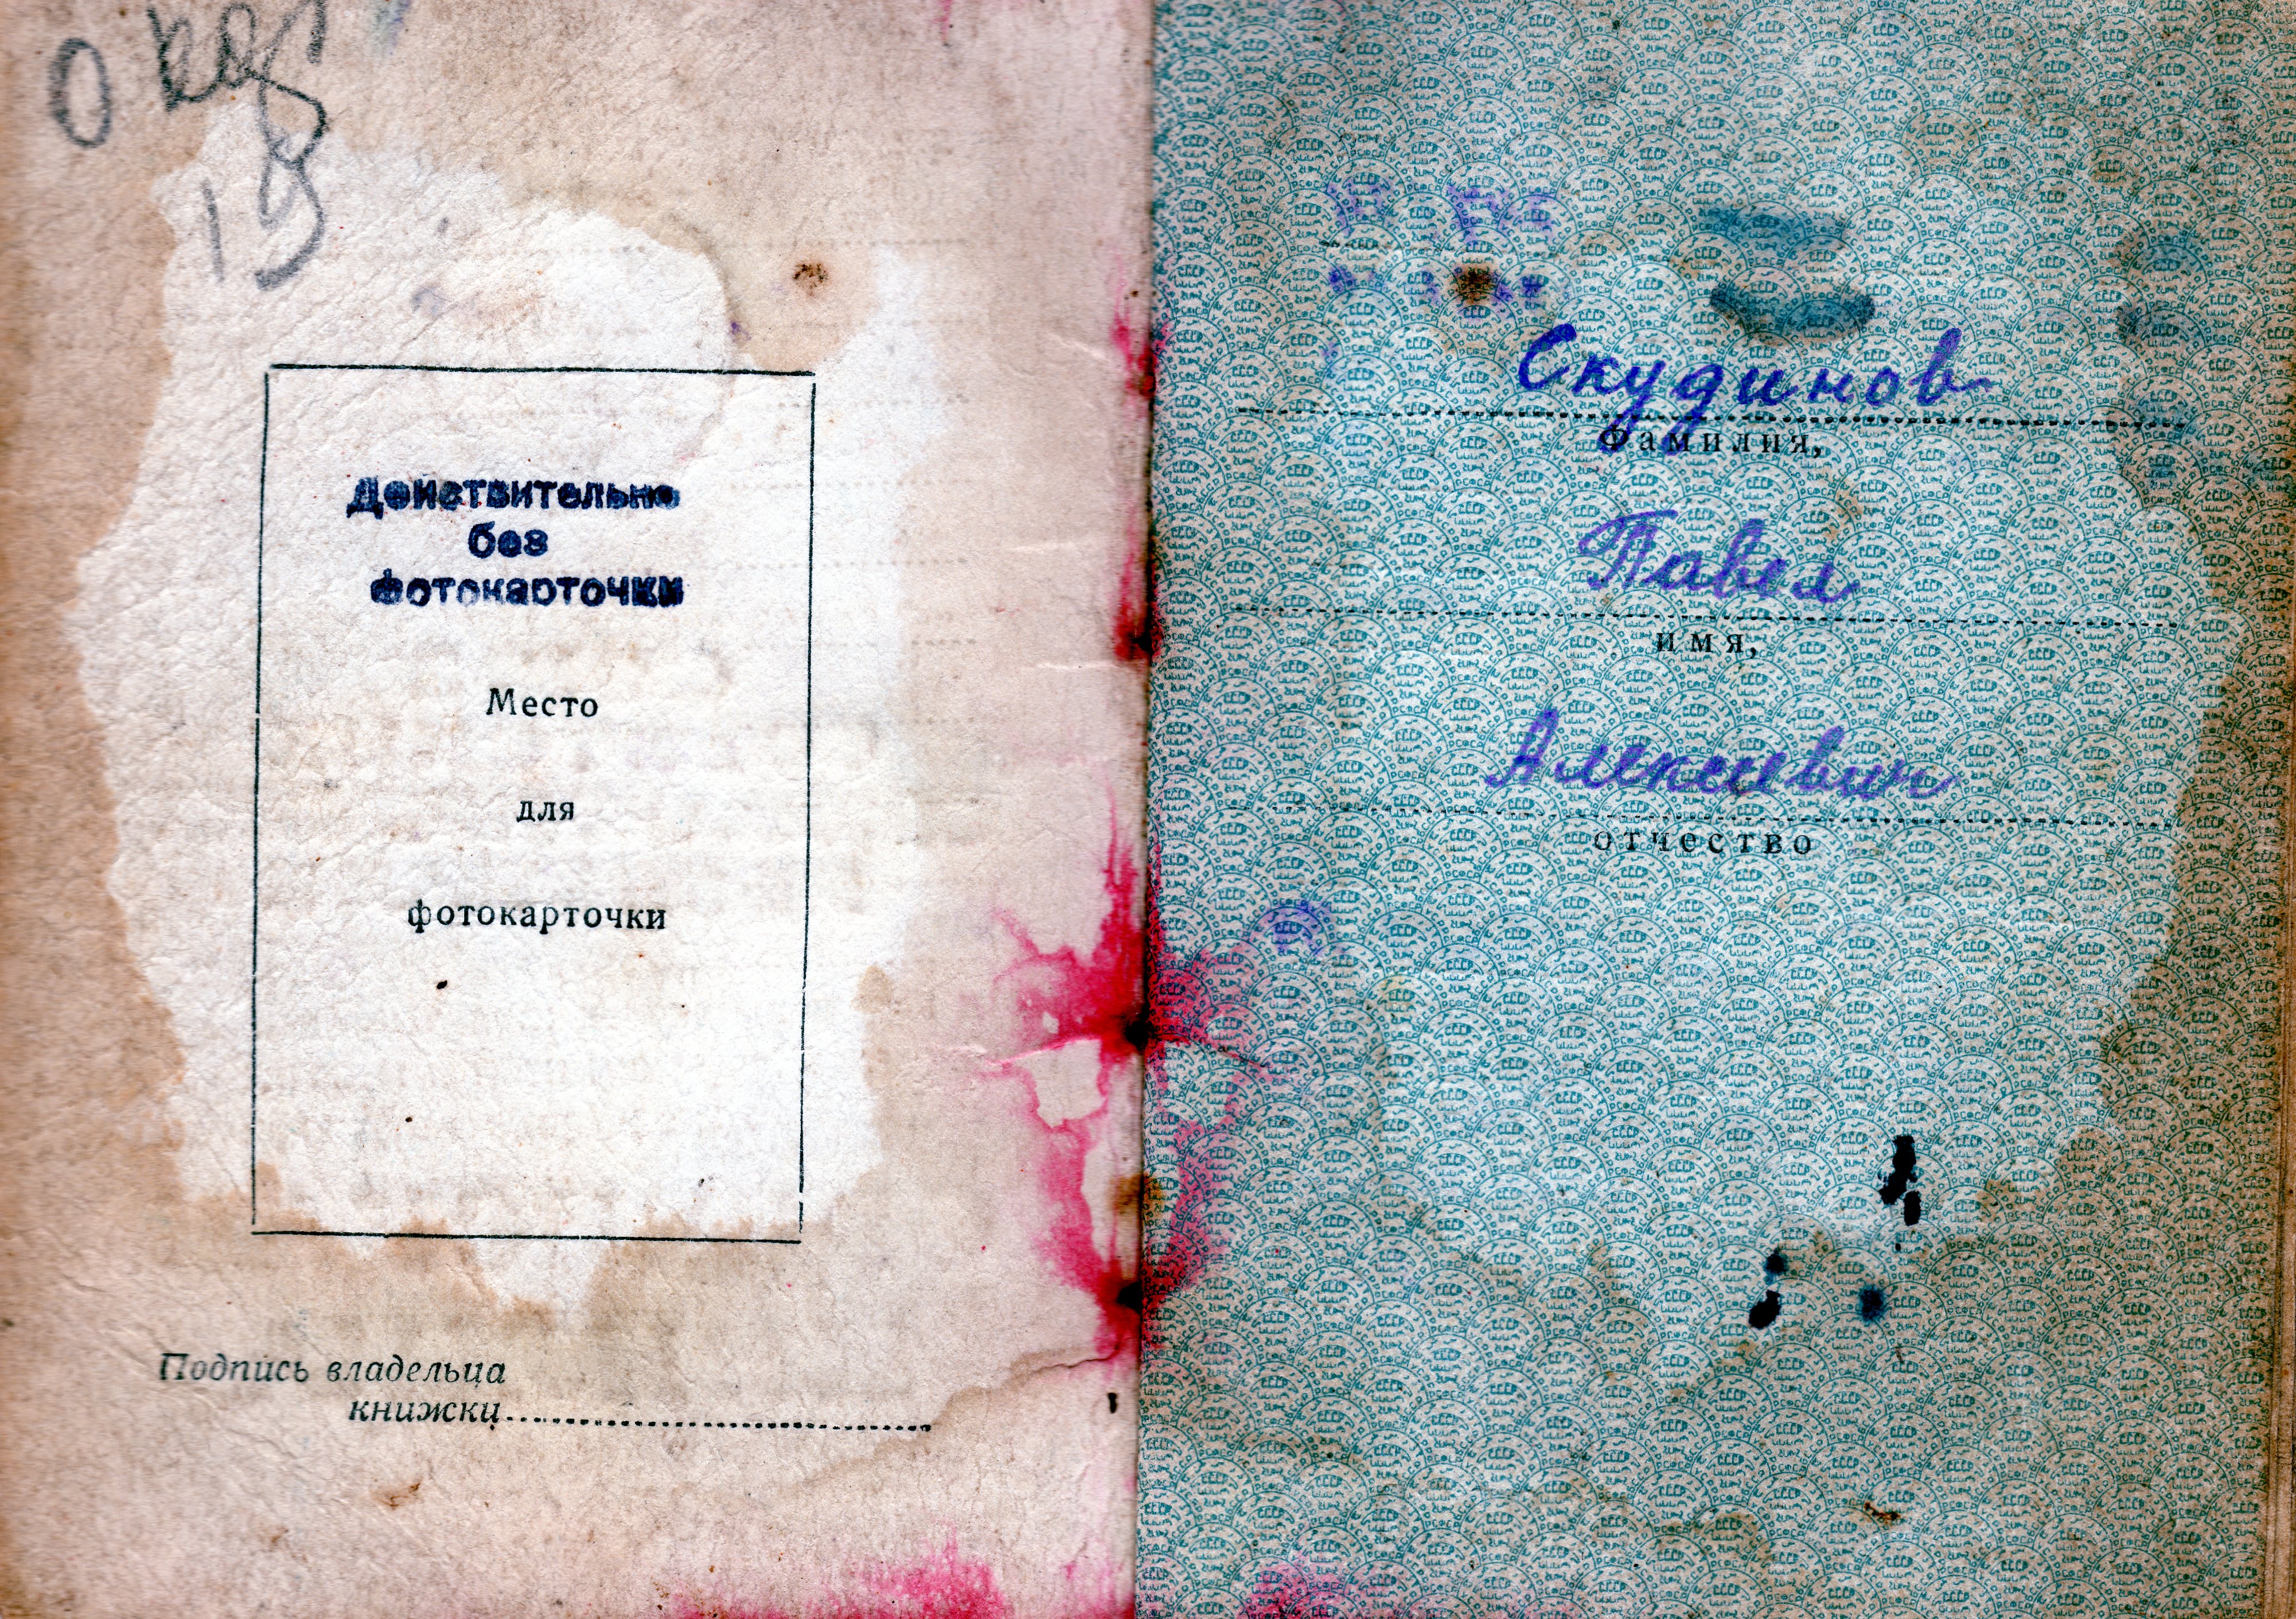 Действительно
без
фотокарточки
Место
для
фотокарточки
Подпись владельца
книжки
Скудинов
Фамилия,
Павел
имя,
Алексеевич
отчество